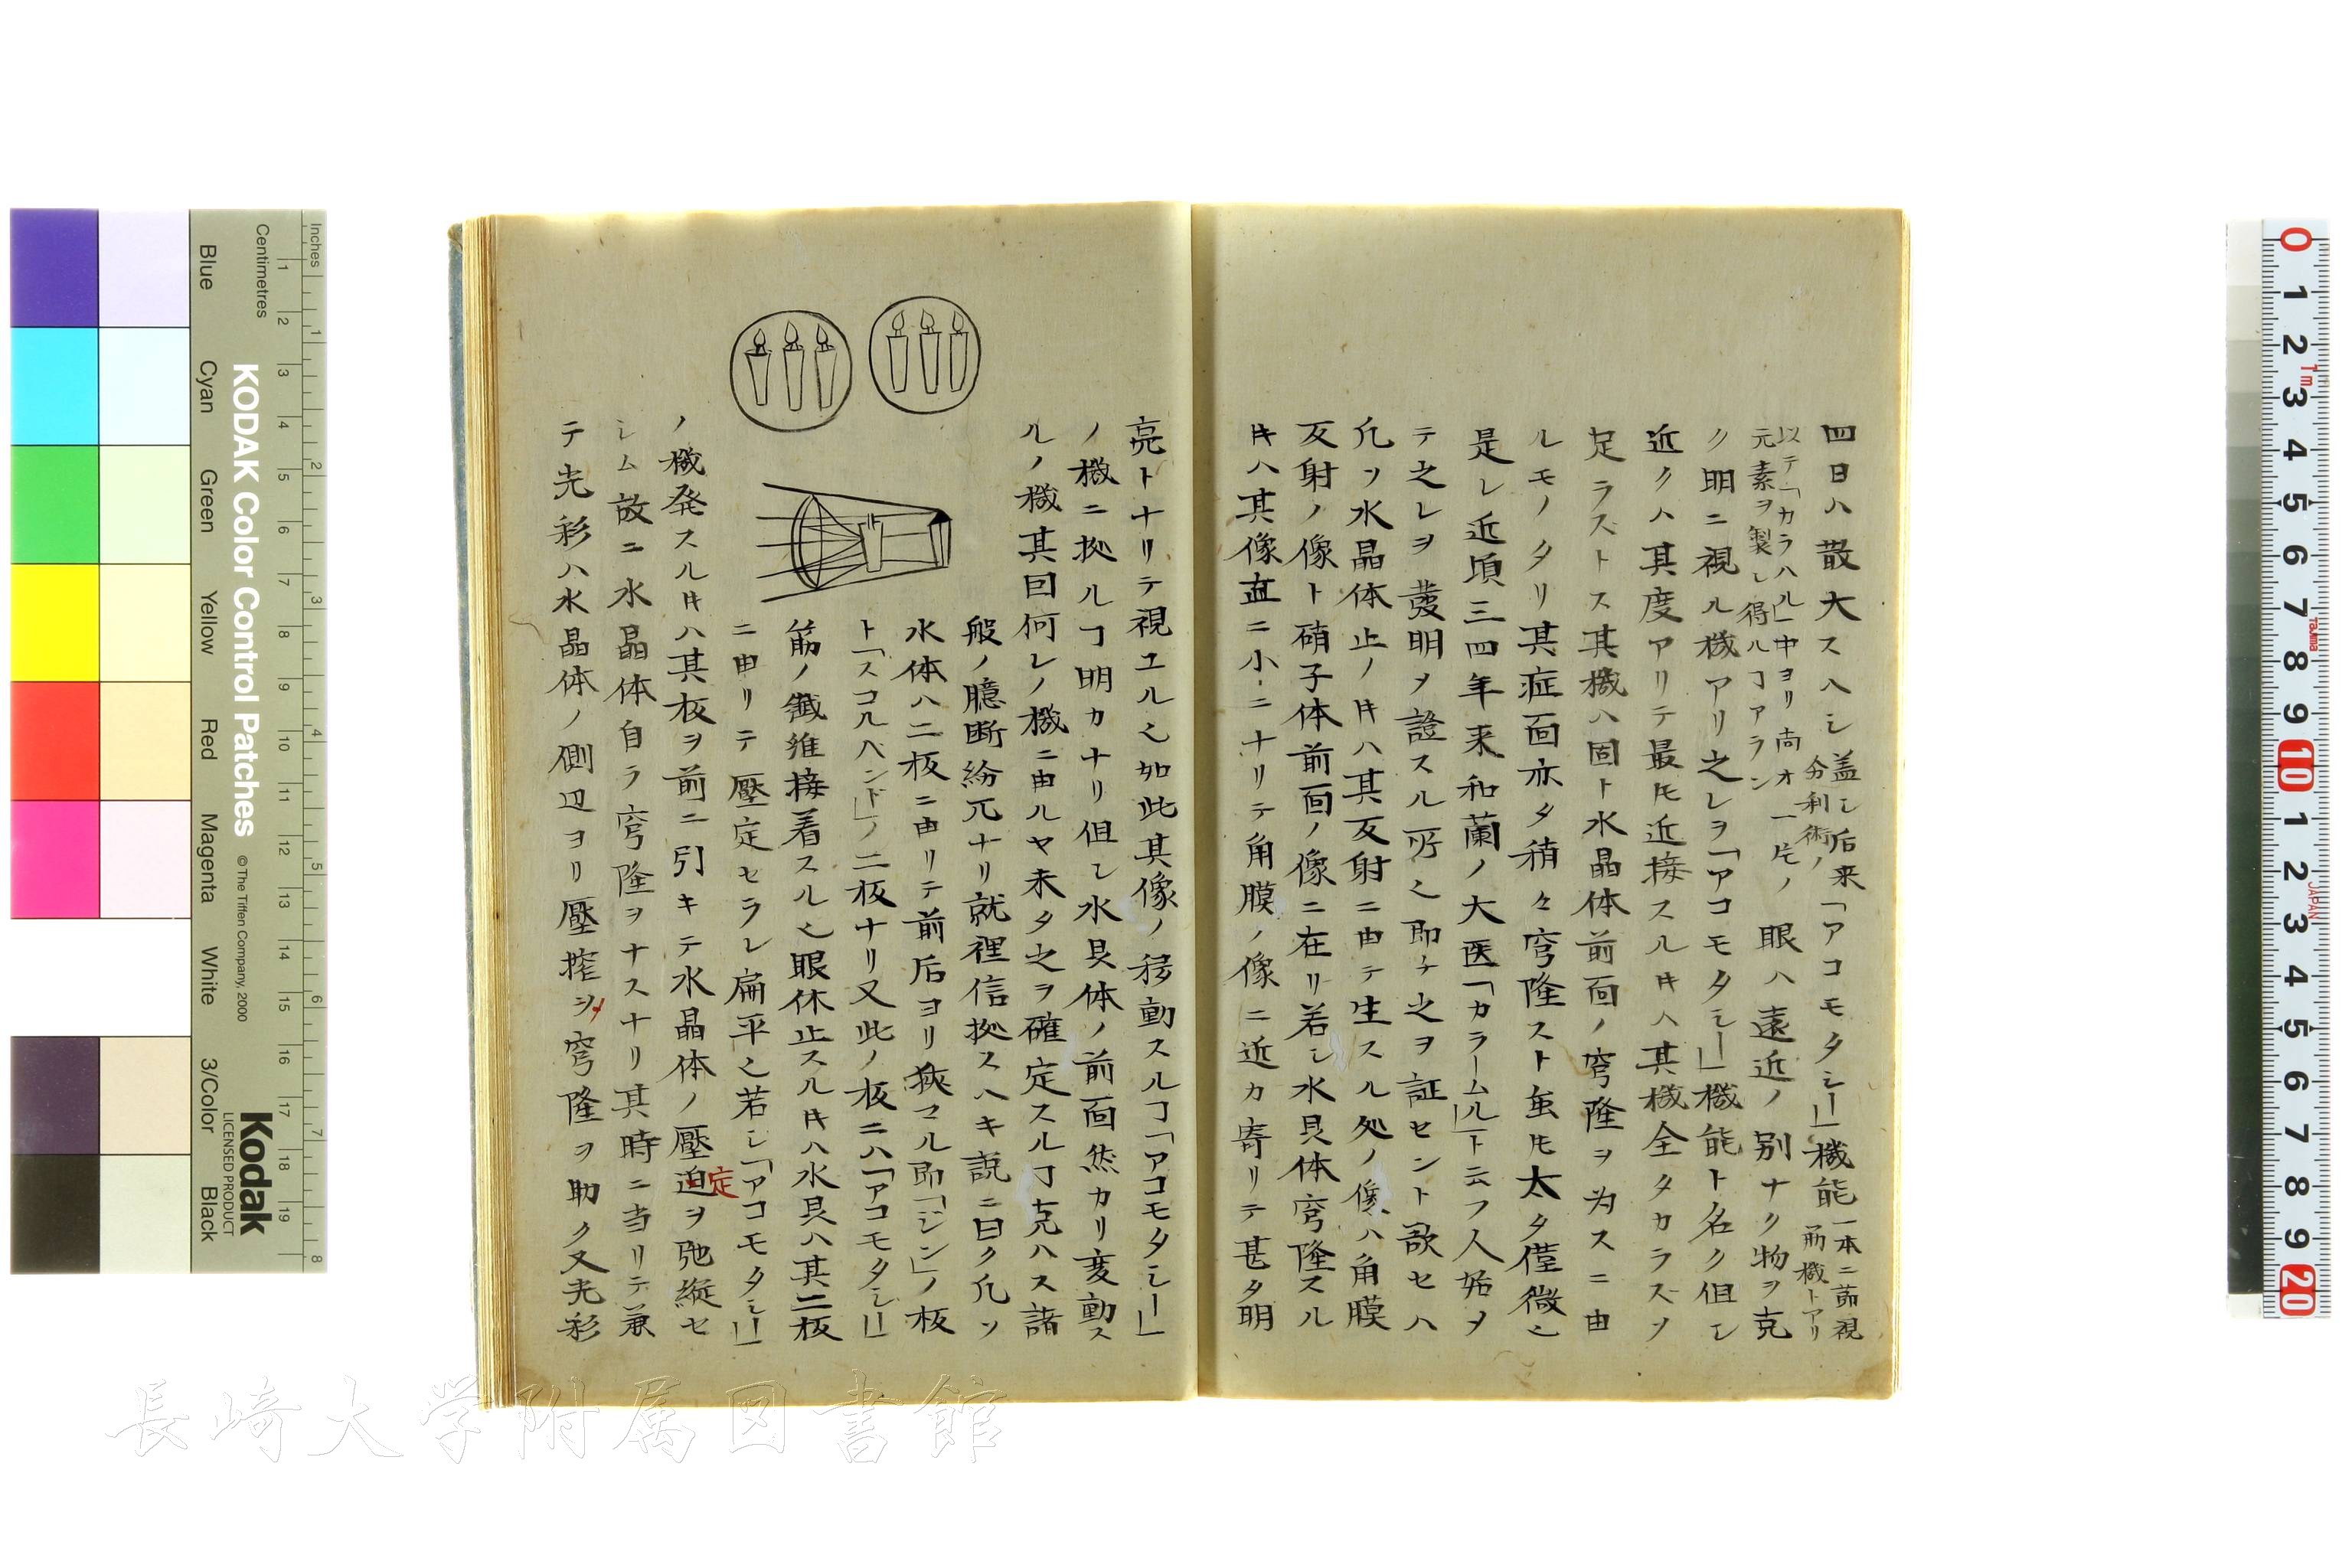 四日ハ散大スヘシ盖シ后来「アコモタシー」機能一本ニ節視
節機トアリ
分利術ノ
以テ「カラハル」中ヨリ尚オ一片ノ
元素ヲ製シ得ルヿアラン
眼ハ遠近ノ別ナク物ヲ克
ク明ニ視ル機アリ之レヲ「アコモタシー」機能ト名ク但シ
近クハ其度アリテ最𪜈近接スルキハ其機全タカラズソ
足ラズトス其機ハ固ト水晶体前面ノ穹隆ヲ为スニ由
ルモノタリ其症面亦タ稍々穹隆スト虽𪜈太タ僅微也
是レ近頃三四年来和蘭ノ大医「カラームル」ト云フ人始メ
テ之レヲ發明メ證スル所也即チ之ヲ証セント欲セハ
凢ソ水晶体止ノキハ其反射ニ由テ生スル処ノ像ハ角膜
反射ノ像ト硝子体前面ノ像ニ在リ若シ水晶体穹隆スル
キハ其像直ニ小ニナリテ角膜ノ像ニ近カ寄リテ甚タ明
亮トナリテ視ユル也如此其像ノ移動スルヿ「アコモタシー」
ノ機ニ拠ルヿ明カナリ但シ水晶体ノ前面然カリ変動ス
ルノ機其因何レノ機ニ由ルヤ未タ之ヲ確定スルヿ克ハス諸
般ノ臆断紛冗ナリ就裡信拠スヘキ説ニ曰ク凢ソ
水体ハ二板ニ由リテ前后ヨリ狹マル即「ジン」ノ板
ト「スコルベンド」ノ二板ナリ又此ノ板ニハ「アコモタシー」
筋ノ鐵維接着スル也眼休止スルキハ水晶ハ其二板
ニ由リテ壓定セラレ扁平也若シ「アコモタシー」
ノ機発スルキハ其板ヲ前ニ引キテ水晶体ノ壓迫ヲ弛縦セ
定
シム故ニ水晶体自ラ穹隆ヲナスナリ其時ニ当リテ兼
テ光彩ハ水晶体ノ側辺ヨリ壓搾シメ穹隆ヲ助ク又光彩
長崎大学附属図書館
Inches
Centimetres
1 2 3 4 5 6 7 8
1 2 3 4 5 6 7 8 9 10 11 12 13 14 15 16 17 18 19
KODAK Color Control Patches
© The Tiffen Company, 2000
Kodak
LICENSED PRODUCT
Blue
Cyan
Green
Yellow
Red
Magenta
White
3/Color
Black
0 1 2 3 4 5 6 7 8 9 10 1 2 3 4 5 6 7 8 9 20
1m
Tajima
JAPAN